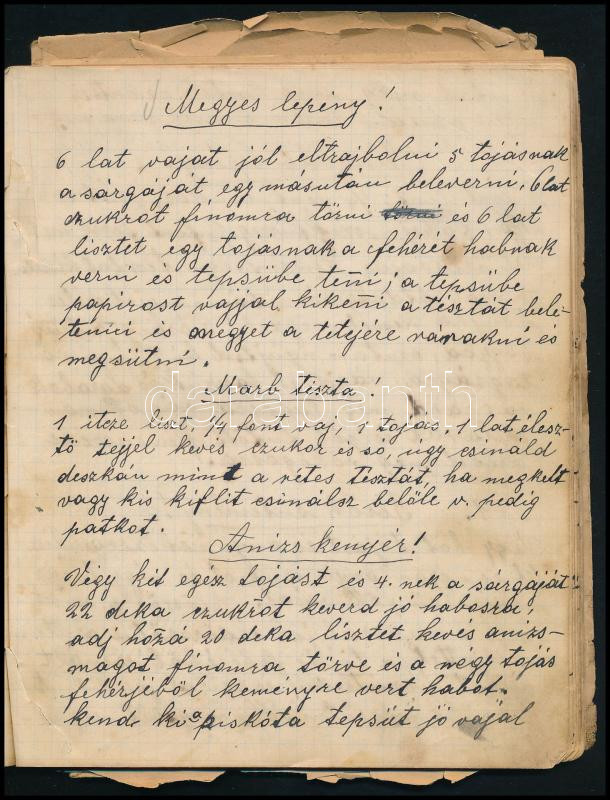 Megyes lepény!
6 lat vajat jól eltrajbolni 5 tojásnak
a sárgáját egymásután beleverni, 6 lat
czukrot finomra törni és 6 lat
lisztet egy tojásnak a fehérét habnak
verni és tepsübe tenni; a tepsübe
papirost vajjal kikenni a tésztát bele-
tenni és megyet a tetejére rárakni és
megsütni.
darabanth
Marb tészta!
1 itcze liszt, 1/4 font vaj, 1 tojás, 1 lat élesz-
tő tejjel kevés czukor és só, úgy csináld
deszkán mint a rétes tésztát, ha megkelt
vagy kis kiflit csinálsz belőle v. pedig
patkot.
Anizs kenyér!
Végy két egész tojást és 4. nek a sárgáját
22 deka czukrot keverd jó habosra,
adj hozza 20 deka lisztet kevés anizs-
magot finomra törve és a négy tojás
fehérjéből keményre vert habot.
kend ki a piskóta tepsüt jó vajal